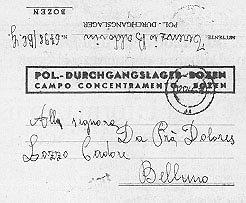 BOZEN
POL. - DURCHGANGSLAGER
MITTENTE:
POL.-DURCHGANGSLAGER-BOZEN
CAMPO CONCENTRAMENTO BOZEN
Alla signora
Da Prà Dolores
Lozzo Cadore
Belluno